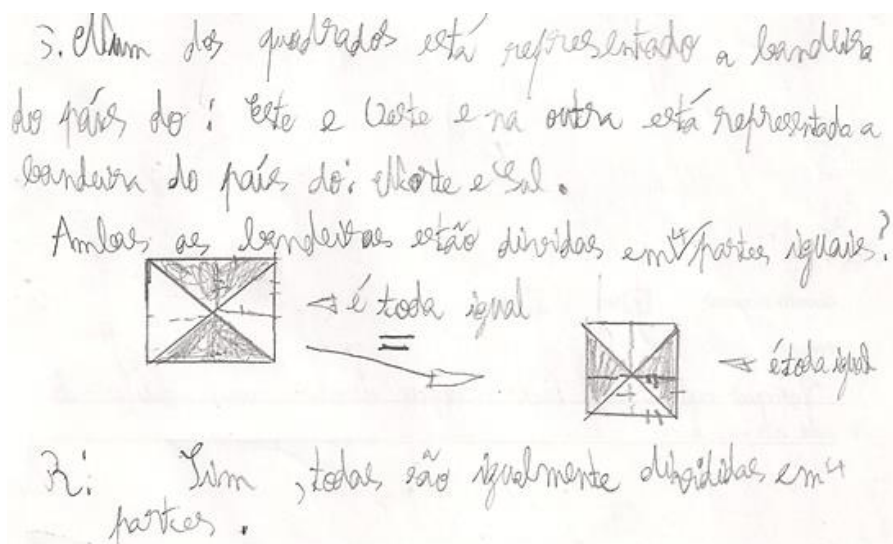 3. Num dos quadrados está representado a bandeira
do país do: Este e Oeste e na outra está representada a
bandeira do país do: Norte e Sul.
Ambas as bandeiras estão divididas em 4 partes iguais?
é toda igual
=
é toda igual
R: Sim, todas são igualmente divididas em 4
partes.